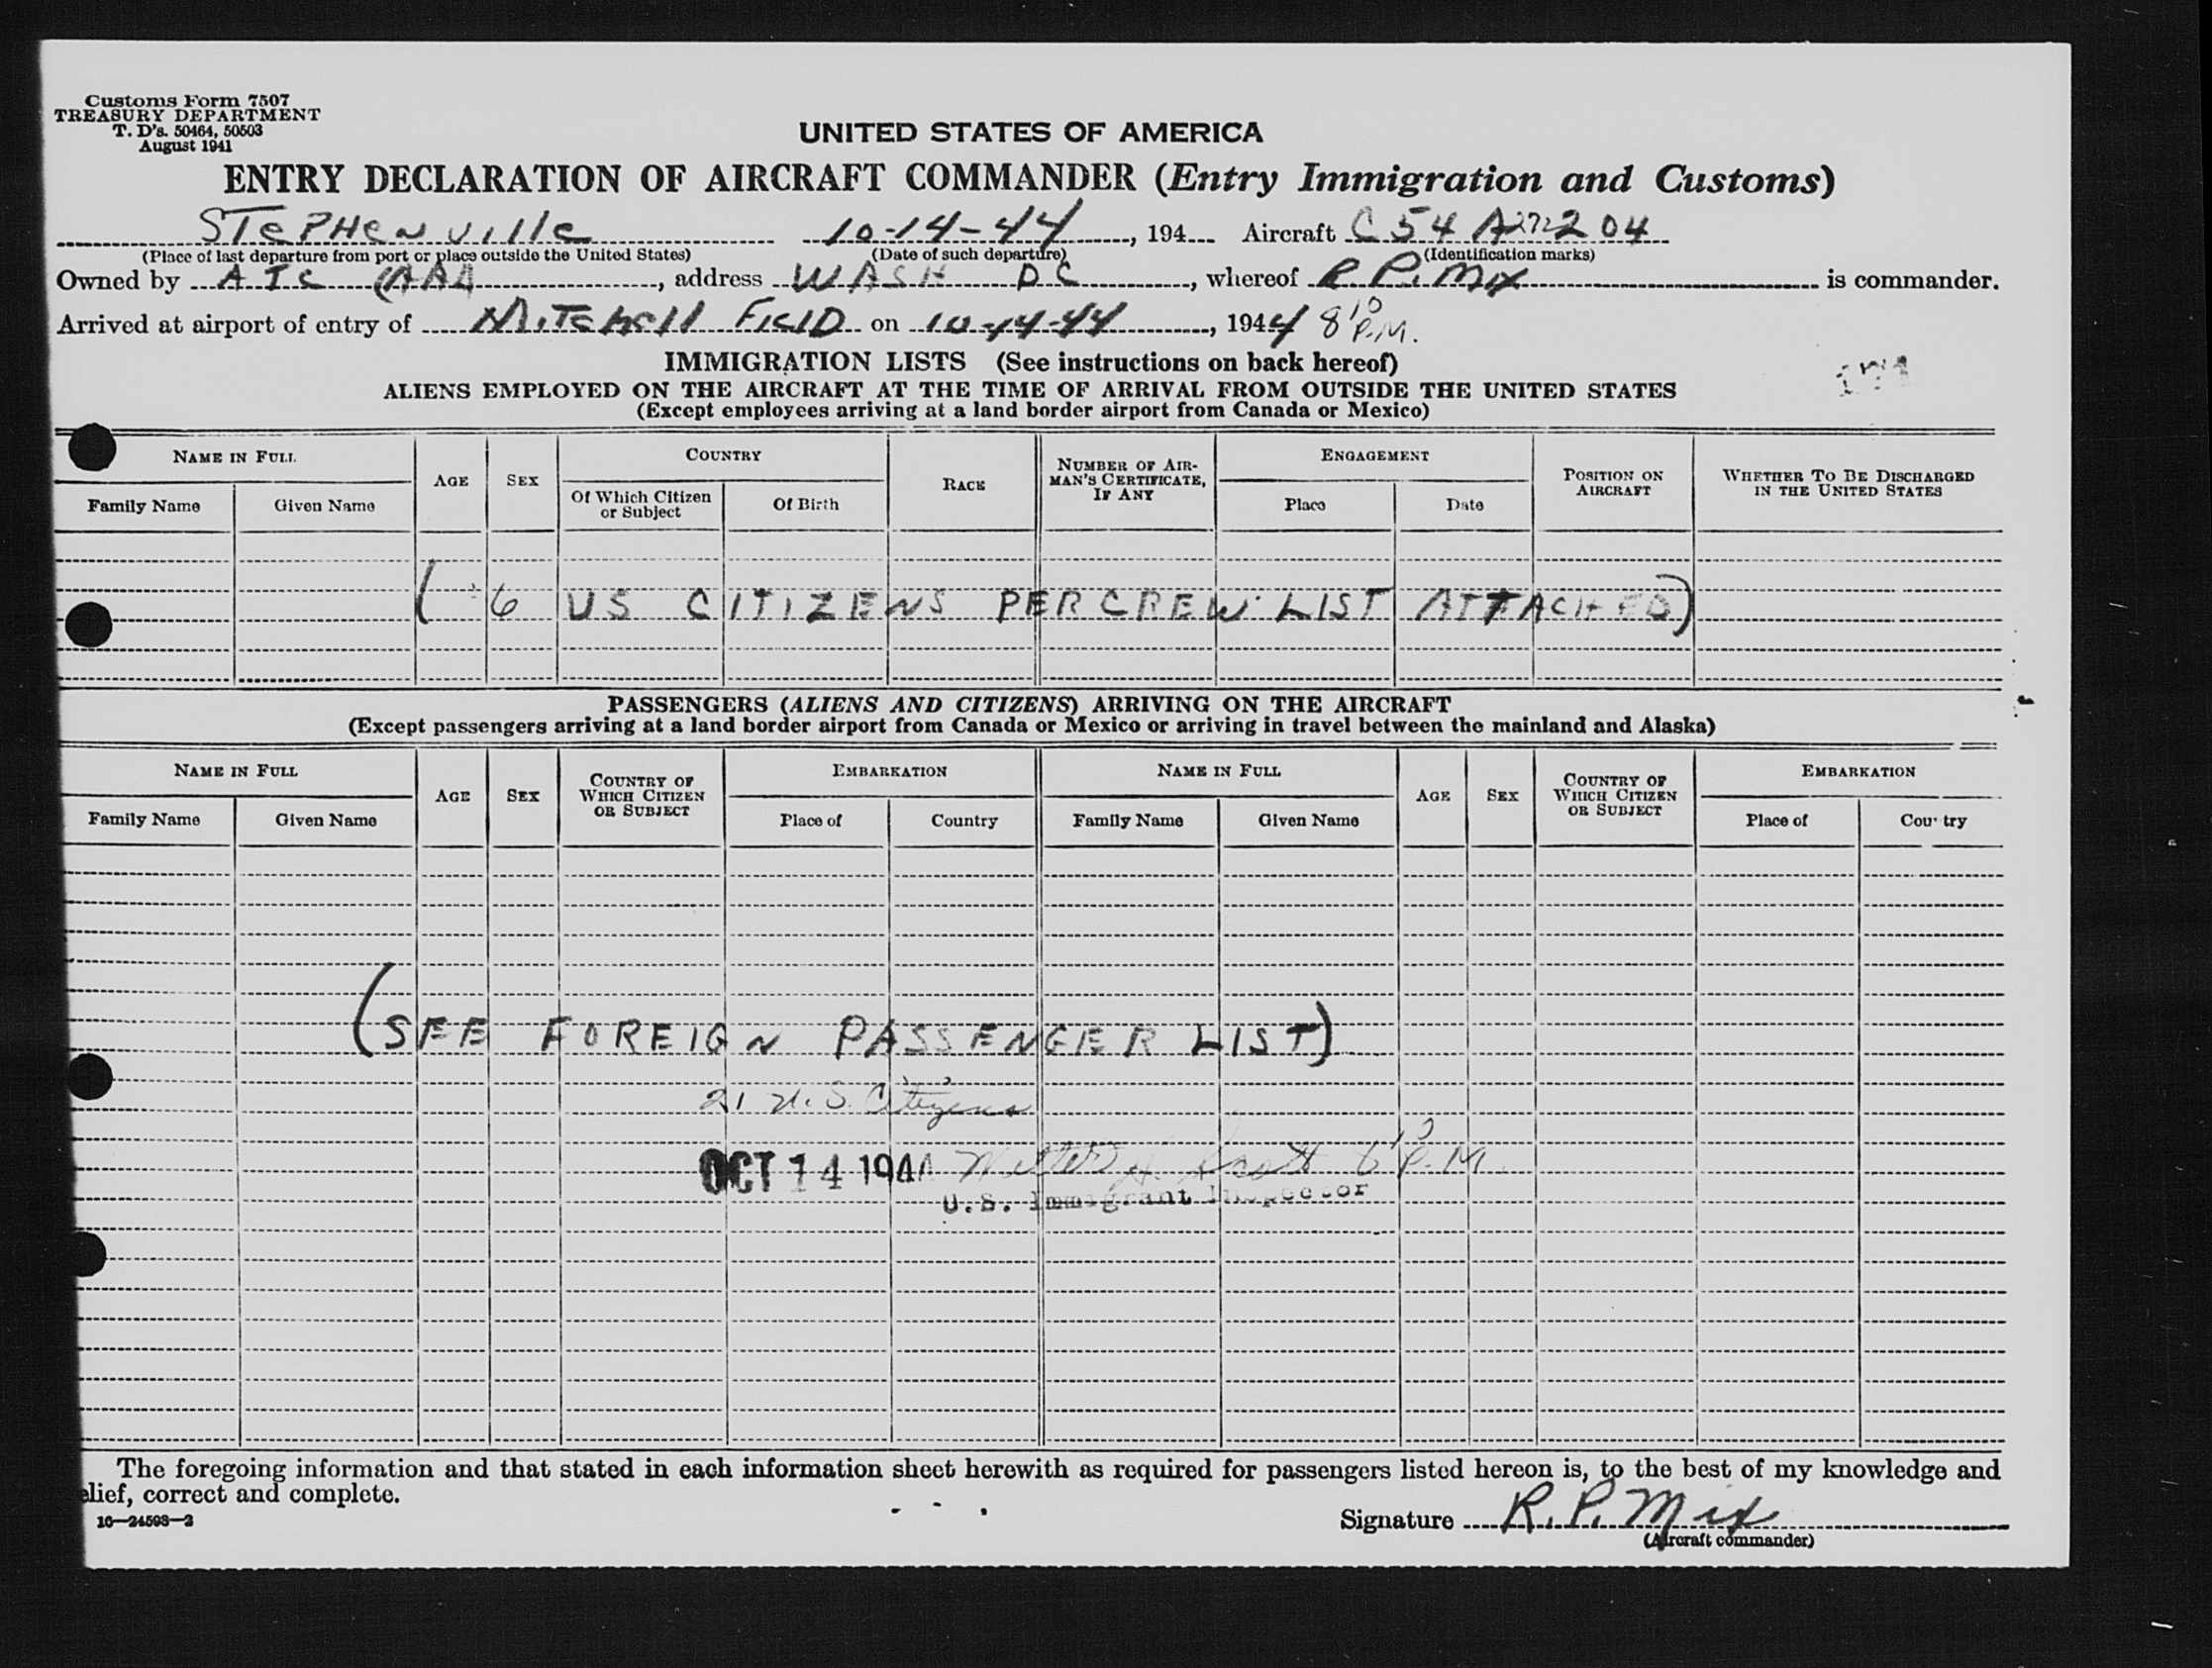 Customs Form 7507
TREASURY DEPARTMENT
T. D's. 50464, 50503
August 1941
UNITED STATES OF AMERICA
ENTRY DECLARATION OF AIRCRAFT COMMANDER (Entry Immigration and Customs)
STEPHENVILLE 10-14-44, 194 Aircraft C54 A272204
(Place of last departure from port or place outside the United States) (Date of such departure) (Identification marks)
Owned by ATC (AAA, address WASH DC, whereof R. P. Mix is commander.
Arrived at airport of entry of Mitchell Field on 10-14-44, 1944 8 10 P.M.
IMMIGRATION LISTS (See instructions on back hereof)
ALIENS EMPLOYED ON THE AIRCRAFT AT THE TIME OF ARRIVAL FROM OUTSIDE THE UNITED STATES
(Except employees arriving at a land border airport from Canada or Mexico)
NAME IN FULL AGE SEX COUNTRY RACE NUMBER OF AIRMAN'S CERTIFICATE, IF ANY ENGAGEMENT POSITION ON AIRCRAFT WHETHER TO BE DISCHARGED IN THE UNITED STATES
Family Name Given Name Of Which Citizen or Subject Of Birth Place Date
( 6 US CITIZENS PER CREW LIST ATTACHED)
PASSENGERS (ALIENS AND CITIZENS) ARRIVING ON THE AIRCRAFT
(Except passengers arriving at a land border airport from Canada or Mexico or arriving in travel between the mainland and Alaska)
NAME IN FULL AGE SEX COUNTRY OF WHICH CITIZEN OR SUBJECT EMBARKATION NAME IN FULL AGE SEX COUNTRY OF WHICH CITIZEN OR SUBJECT EMBARKATION
Family Name Given Name Place of Country Family Name Given Name Place of Country
(SEE FOREIGN PASSENGER LIST)
21 U.S. Citizens
OCT 14 1944 Scott 8 10 P.M.
U.S. Immigrant Inspector
The foregoing information and that stated in each information sheet herewith as required for passengers listed hereon is, to the best of my knowledge and
elief, correct and complete.
16—24598—2
Signature R. P. Mix
(Aircraft commander)